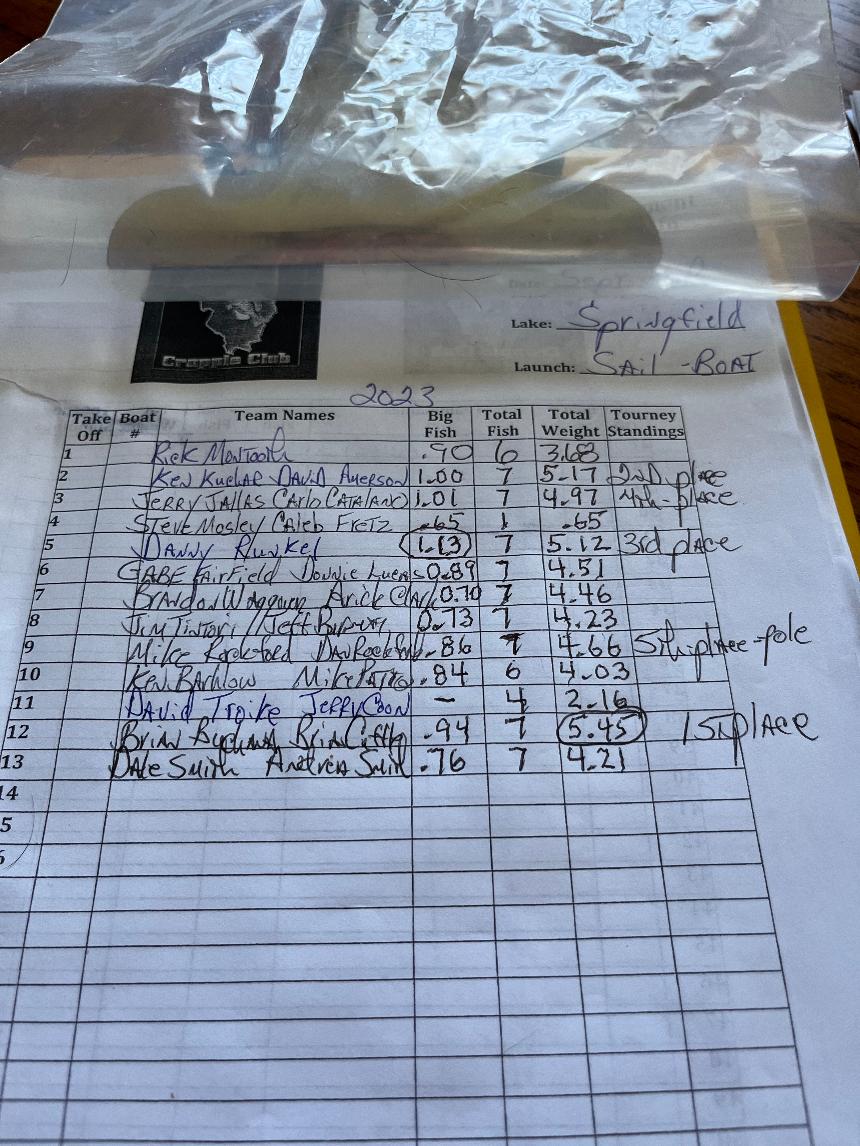 Crappie Club
Lake: Springfield
Launch: SAIL-BOAT
2023
Take Off Boat # Team Names Big Fish Total Fish Total Weight Tourney Standings
1 Rick Montooth .90 6 3.68
2 Ken Kuehar David Amerson 1.00 7 5.17 2nd place
3 Jerry Jallas Carlo Catalano 1.01 7 4.97 4th-place
4 Steve Mosley Caleb Fretz .65 1 .65
5 Danny Runkel 1.13 7 5.12 3rd place
6 Gabe Fairfield Donnie Lucas 0.89 7 4.51
7 Brandon Arick 0.70 7 4.46
8 Jim Tintori / Jeff 0.73 7 4.23
9 Mike Rockford Dan .86 7 4.66 5th place-pole
10 Ken Barlow Mike .84 6 4.03
11 David Troike Jerry Coon – 4 2.16
12 Brian Brian .94 7 5.45 1st place
13 Dale Smith Andrew Smith .76 7 4.21
14
5